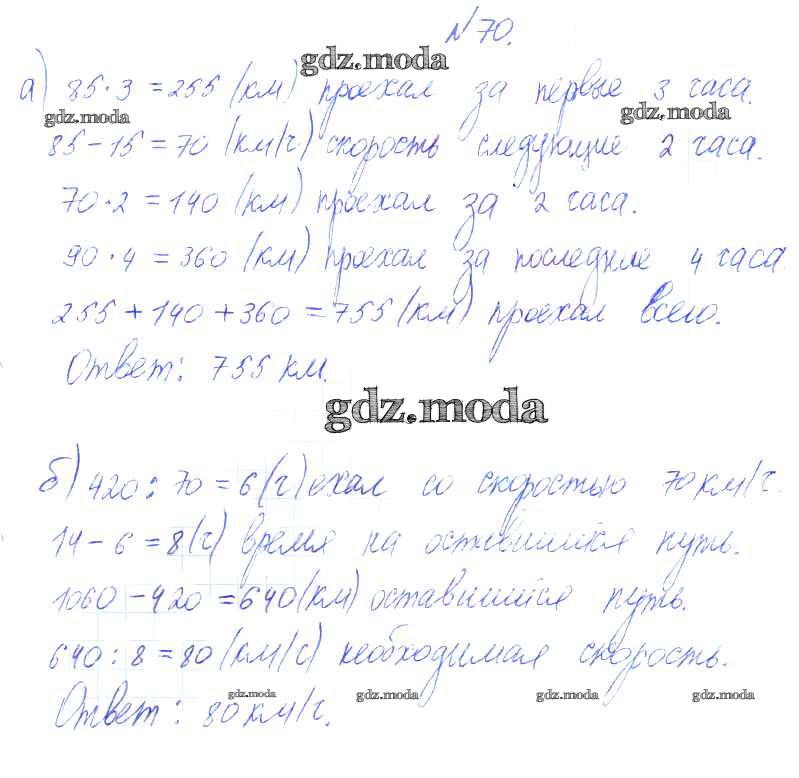 № 70.
gdz.moda
а) 85·3 = 255 (км) проехал за первые 3 часа.
gdz.moda gdz.moda
85 - 15 = 70 (км/г) скорость следующие 2 часа.
70·2 = 140 (км) проехал за 2 часа.
90·4 = 360 (км) проехал за последние 4 часа.
255 + 140 + 360 = 755 (км) проехал всего.
Ответ: 755 км.
gdz.moda
б) 420 : 70 = 6 (г) ехал со скоростью 70 км/г.
14 - 6 = 8 (г) время на оставшийся путь.
1060 - 420 = 640 (км) оставшийся путь.
640 : 8 = 80 (км/с) необходимая скорость.
gdz.moda gdz.moda gdz.moda gdz.moda
Ответ: 80 км/г.